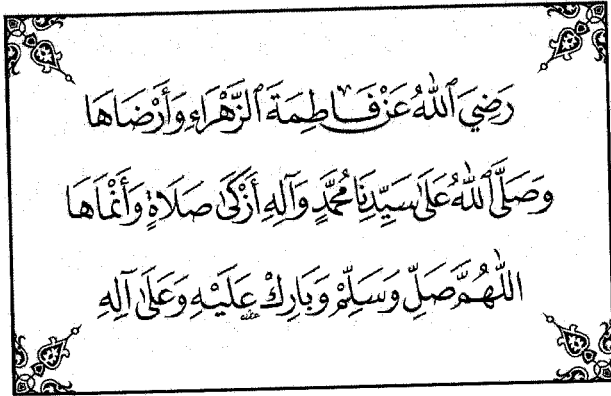 رَضِيَ ٱللّٰهُ عَنْ فَاطِمَةَ ٱلزَّهْرَاءِ وَأَرْضَاهَا
وَصَلَّى ٱللّٰهُ عَلَى سَيِّدِنَا مُحَمَّدٍ وَآلِهِ أَزْكَى صَلَاةٍ وَأَنْمَاهَا
اللّٰهُمَّ صَلِّ وَسَلِّمْ وَبَارِكْ عَلَيْهِ وَعَلَى آلِهِ